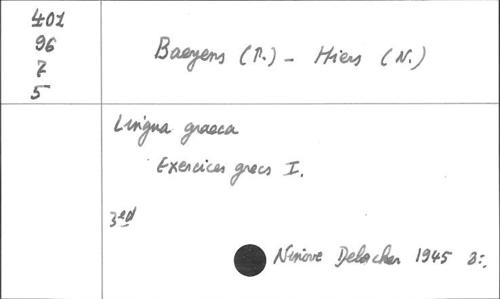 401
96
7
5
Baeyens (R.) - Hiers (N.)
Lingua graeca
Exercices grecs I.
3ed
Ninove Delacher 1945 8:.